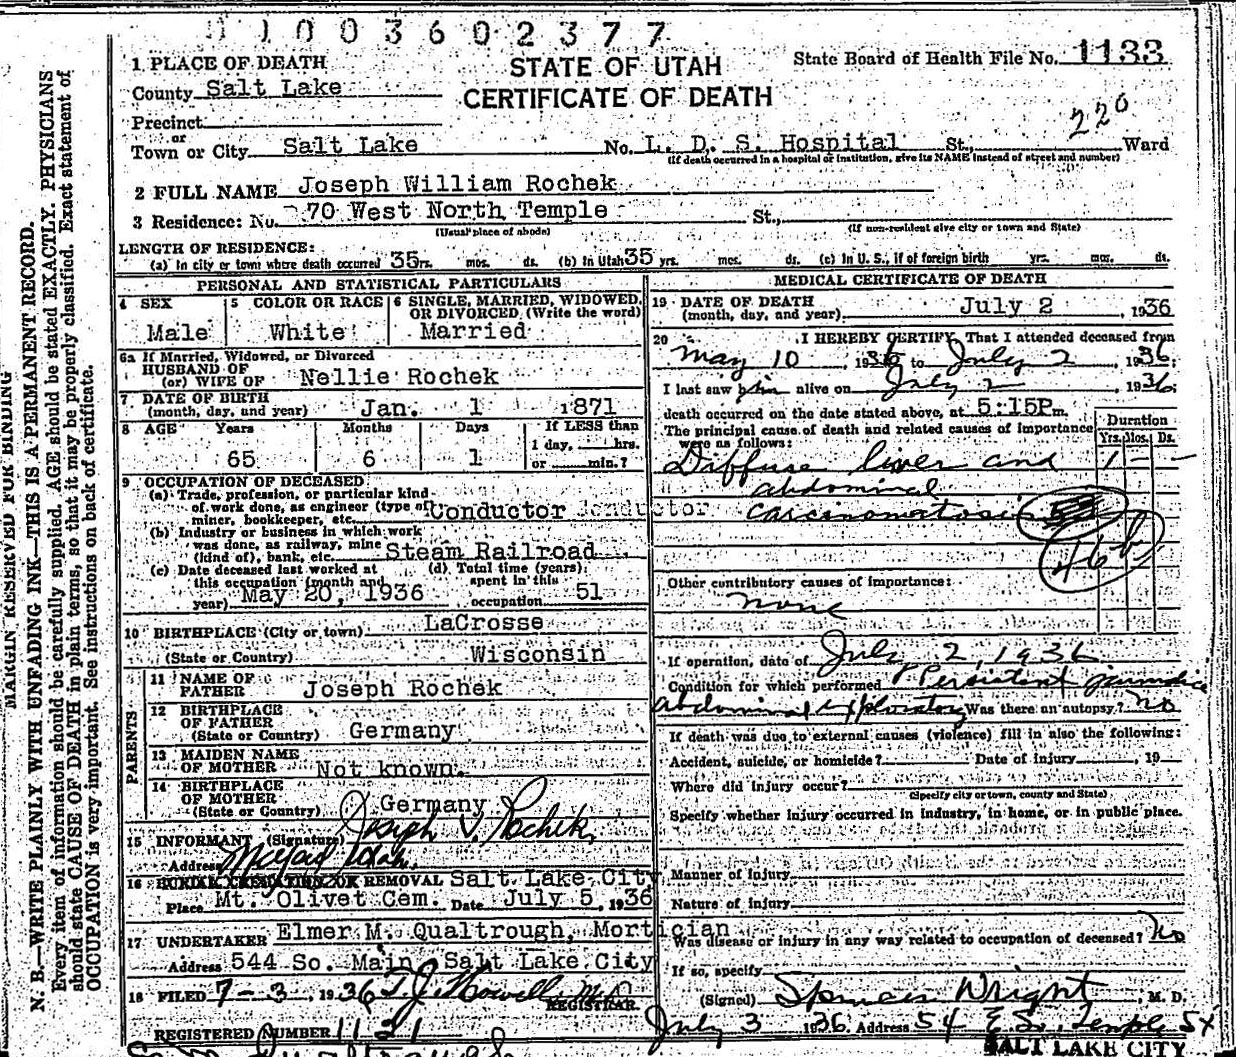 1003602377
1 PLACE OF DEATH
STATE OF UTAH
CERTIFICATE OF DEATH
State Board of Health File No. 1133
County Salt Lake
Precinct
or
220
Town or City Salt Lake No. L. D. S. Hospital St., Ward
(If death occurred in a hospital or institution, give its NAME instead of street and number)
2 FULL NAME Joseph William Rochek
3 Residence: No. 70 West North Temple St.,
(Usual place of abode) (If non-resident give city or town and State)
LENGTH OF RESIDENCE:
(a) In city or town where death occurred 35 rs. mos. ds. (b) In Utah 35 yrs. mos. ds. (c) In U. S., if of foreign birth yrs. mos. ds.
PERSONAL AND STATISTICAL PARTICULARS
4 SEX 5 COLOR OR RACE 6 SINGLE, MARRIED, WIDOWED, OR DIVORCED (Write the word)
Male White Married
6a If Married, Widowed, or Divorced
HUSBAND OF
(or) WIFE OF Nellie Rochek
7 DATE OF BIRTH
(month, day, and year) Jan. 1 1871
8 AGE Years Months Days If LESS than
1 day, hrs.
65 6 1 or min.?
9 OCCUPATION OF DECEASED
(a) Trade, profession, or particular kind
of work done, as engineer (type of
miner, bookkeeper, etc. Conductor Conductor
(b) Industry or business in which work
was done, as railway, mine
(kind of), bank, etc. Steam Railroad
(c) Date deceased last worked at (d) Total time (years)
this occupation (month and spent in this
year) May 20, 1936 occupation 51
10 BIRTHPLACE (City or town) LaCrosse
(State or Country) Wisconsin
PARENTS
11 NAME OF
FATHER Joseph Rochek
12 BIRTHPLACE
OF FATHER
(State or Country) Germany
13 MAIDEN NAME
OF MOTHER Not known.
14 BIRTHPLACE
OF MOTHER
(State or Country) Germany
15 INFORMANT (Signature) Joseph V. Rochek,
Address Utah.
16 BURIAL, CREMATION OR REMOVAL Salt Lake City
Place Mt. Olivet Cem. Date July 5, 1936
17 UNDERTAKER Elmer M. Qualtrough, Mortician
Address 544 So. Main, Salt Lake City
18 FILED 7-3, 1936 T. J. Howells M.D.
REGISTRAR.
REGISTERED NUMBER 1131
MEDICAL CERTIFICATE OF DEATH
19 DATE OF DEATH
(month, day, and year) July 2, 1936
20 I HEREBY CERTIFY, That I attended deceased from
May 10, 1936 to July 2, 1936;
I last saw him alive on July 2, 1936;
death occurred on the date stated above, at 5:15P m.
The principal cause of death and related causes of importance Duration
were as follows: Yrs. Mos. Ds.
Diffuse liver and 1 - -
abdominal
carcinomatosis
46b
Other contributory causes of importance:
none
If operation, date of July 2, 1936
Condition for which performed Persistent jaundice
abdominal exploratory Was there an autopsy? No
If death was due to external causes (violence) fill in also the following:
Accident, suicide, or homicide? Date of injury, 19
Where did injury occur?
(Specify city or town, county and State)
Specify whether injury occurred in industry, in home, or in public place.
Manner of injury
Nature of injury
Was disease or injury in any way related to occupation of deceased? No
If so, specify
(Signed) Spencer Wright, M. D.
July 3 1936 Address 54 E So. Temple St
SALT LAKE CITY
MARGIN RESERVED FOR BINDING
N. B.—WRITE PLAINLY WITH UNFADING INK—THIS IS A PERMANENT RECORD.
Every item of information should be carefully supplied. AGE should be stated EXACTLY. PHYSICIANS
should state CAUSE OF DEATH in plain terms, so that it may be properly classified. Exact statement of
OCCUPATION is very important. See instructions on back of certificate.